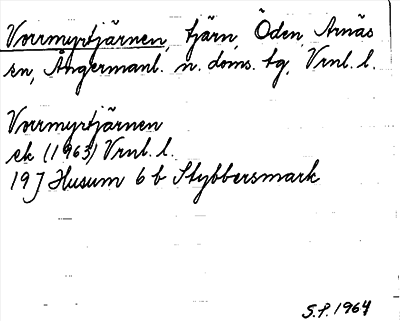 Vorrmyrtjärnen, tjärn, Öden, Arnäs
sn, Ångermanl. n. doms. tg, Vrnl. l.
Vorrmyrtjärnen
ek (1963) Vrnl. l.
19 J Husum 6 b Stybbersmark
S.P. 1964